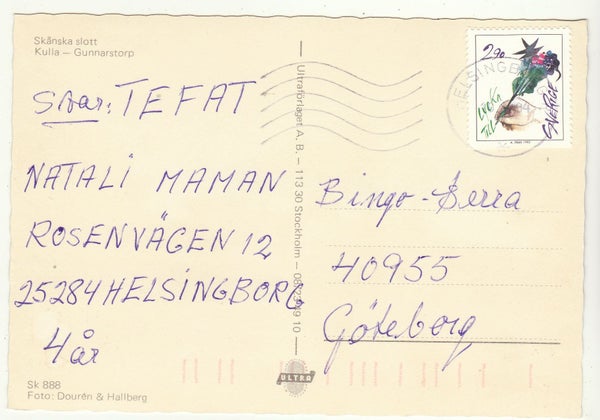 Skånska slott
Kulla – Gunnarstorp
Svar: TEFAT
NATALI MAMAN
ROSENVÄGEN 12
25284 HELSINGBORG
4 år
Sk 888
Foto: Dourén & Hallberg
Ultraförlaget A.B. – 113 30 Stockholm
ULTRA
2,90
LYCKA
TILL
SVERIGE
Bingo-Berra
40955
Göteborg